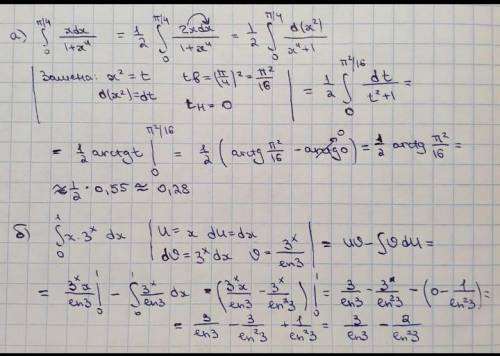 а) ∫₀^{π/4} xdx/(1+x⁴) = 1/2 ∫₀^{π/4} 2xdx/(1+x⁴) = 1/2 ∫₀^{π/4} d(x²)/(x⁴+1)
| Замена: x² = t tв = (π/4)² = π²/16 | = 1/2 ∫₀^{π²/16} dt/(t²+1) =
| d(x²) = dt tн = 0 |
= 1/2 arctg t |₀^{π²/16} = 1/2 (arctg π²/16 − arctg 0) = 1/2 arctg π²/16 =
≈ 1/2 · 0,55 ≈ 0,28
б) ∫₀¹ x·3ˣ dx | U = x dU = dx | = Uϑ − ∫ϑdU =
| dϑ = 3ˣ dx ϑ = 3ˣ/ln3 |
= 3ˣx/ln3 |₀¹ − ∫₀¹ 3ˣ/ln3 dx = (3ˣx/ln3 − 3ˣ/ln²3) |₀¹ = 3/ln3 − 3ˣ/ln²3 − (0 − 1/ln²3) =
= 3/ln3 − 3/ln²3 + 1/ln²3 = 3/ln3 − 2/ln²3